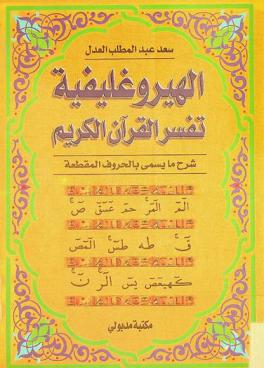 سعد عبد المطلب العدل
الهيروغليفية
تفسر القرآن الكريم
شرح ما يسمى بالحروف المقطعة
الٓمٓ الٓمٓرٰ حمٓ عٓسٓقٓ صٓ
قٓ طه طسٓ الٓمٓصٓ
كٓهيعٓصٓ يسٓ الٓرٰ نٓ
مكتبة مدبولي